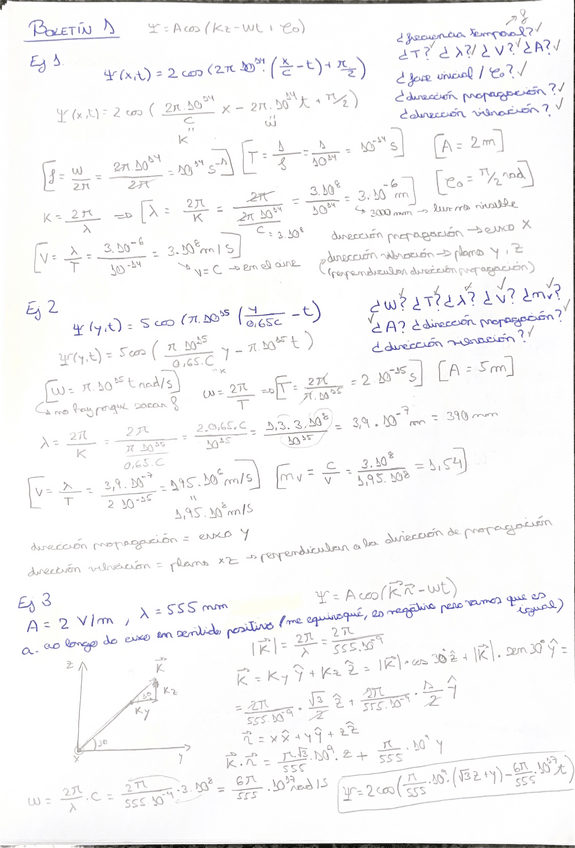 BOLETÍN 1 Ψ = A cos (Kz - wt + φ₀)
¿frecuencia temporal? ✓ → f
¿T? ✓ ¿λ? ✓ ¿V? ✓ ¿A? ✓
¿fase inicial / φ₀? ✓
¿dirección propagación? ✓
¿dirección vibración? ✓
Ej 1
Ψ(x,t) = 2 cos (2π 10¹⁴ (x/c - t) + π/2)
Ψ(x,t) = 2 cos (2π·10¹⁴/c x - 2π·10¹⁴ t + π/2)
K w
[f = w/2π = 2π·10¹⁴/2π = 10¹⁴ s⁻¹] [T = 1/f = 1/10¹⁴ = 10⁻¹⁴ s] [A = 2m]
[φ₀ = π/2 rad]
K = 2π/λ ⇒ [λ = 2π/K = 2π/(2π 10¹⁴/c) = 3·10⁸/10¹⁴ = 3·10⁻⁶ m]
c = 3·10⁸
↳ 3000 nm → luz no visible
[V = λ/T = 3·10⁻⁶/10⁻¹⁴ = 3·10⁸ m/s]
↳ V = C → en el aire
dirección propagación → eixo X
dirección vibración → plano y, z
(perpendicular dirección propagación)
Ej 2
Ψ(y,t) = 5 cos (π·10¹⁵ (y/0,65c - t)
¿w? ✓ ¿T? ✓ ¿λ? ✓ ¿V? ✓ ¿nv? ✓
¿A? ✓ ¿dirección propagación? ✓
¿dirección vibración? ✓
Ψ(y,t) = 5 cos (π 10¹⁵/0,65·C y - π·10¹⁵ t)
[w = π·10¹⁵ t rad/s] w = 2π/T ⇒ [T = 2π/π·10¹⁵ = 2·10⁻¹⁵ s] [A = 5m]
↳ no hay porque sacar f
λ = 2π/K = 2π/(π 10¹⁵/0,65·C) = 2·0,65·C/10¹⁵ = 1,3·3·10⁸/10¹⁵ = 3,9·10⁻⁷ m = 390 nm
[V = λ/T = 3,9·10⁻⁷/2·10⁻¹⁵ = 195·10⁶ m/s] [nv = C/V = 3·10⁸/1,95·10⁸ = 1,54]
1,95·10⁸ m/s
dirección propagación = eixo Y
dirección vibración = plano xz → perpendicular a la dirección de propagación
Ej 3
Ψ = A cos (K⃗ r⃗ - wt)
A = 2 V/m, λ = 555 nm
a. ao longo do eixo en sentido positivo (me equivoqué, es negativo pero vamos que es igual)
|K⃗| = 2π/λ = 2π/555·10⁻⁹
K⃗ = Ky ŷ + Kz ẑ = |K⃗|·cos 30° ẑ + |K⃗|·sen 30° ŷ =
= 2π/555·10⁻⁹ · √3/2 ẑ + 2π/555·10⁻⁹ · 1/2 ŷ
r⃗ = xx̂ + yŷ + zẑ
K⃗·r⃗ = π√3/555·10⁹·z + π/555·10⁹ y
z K⃗ 30 Kz Ky 30 x y
w = 2π/λ · C = 2π/555·10⁻⁹ · 3·10⁸ = 6π/555·10¹⁷ rad/s
Ψ = 2 cos (π/555·10⁹·(√3z + y) - 6π/555·10¹⁷ t)